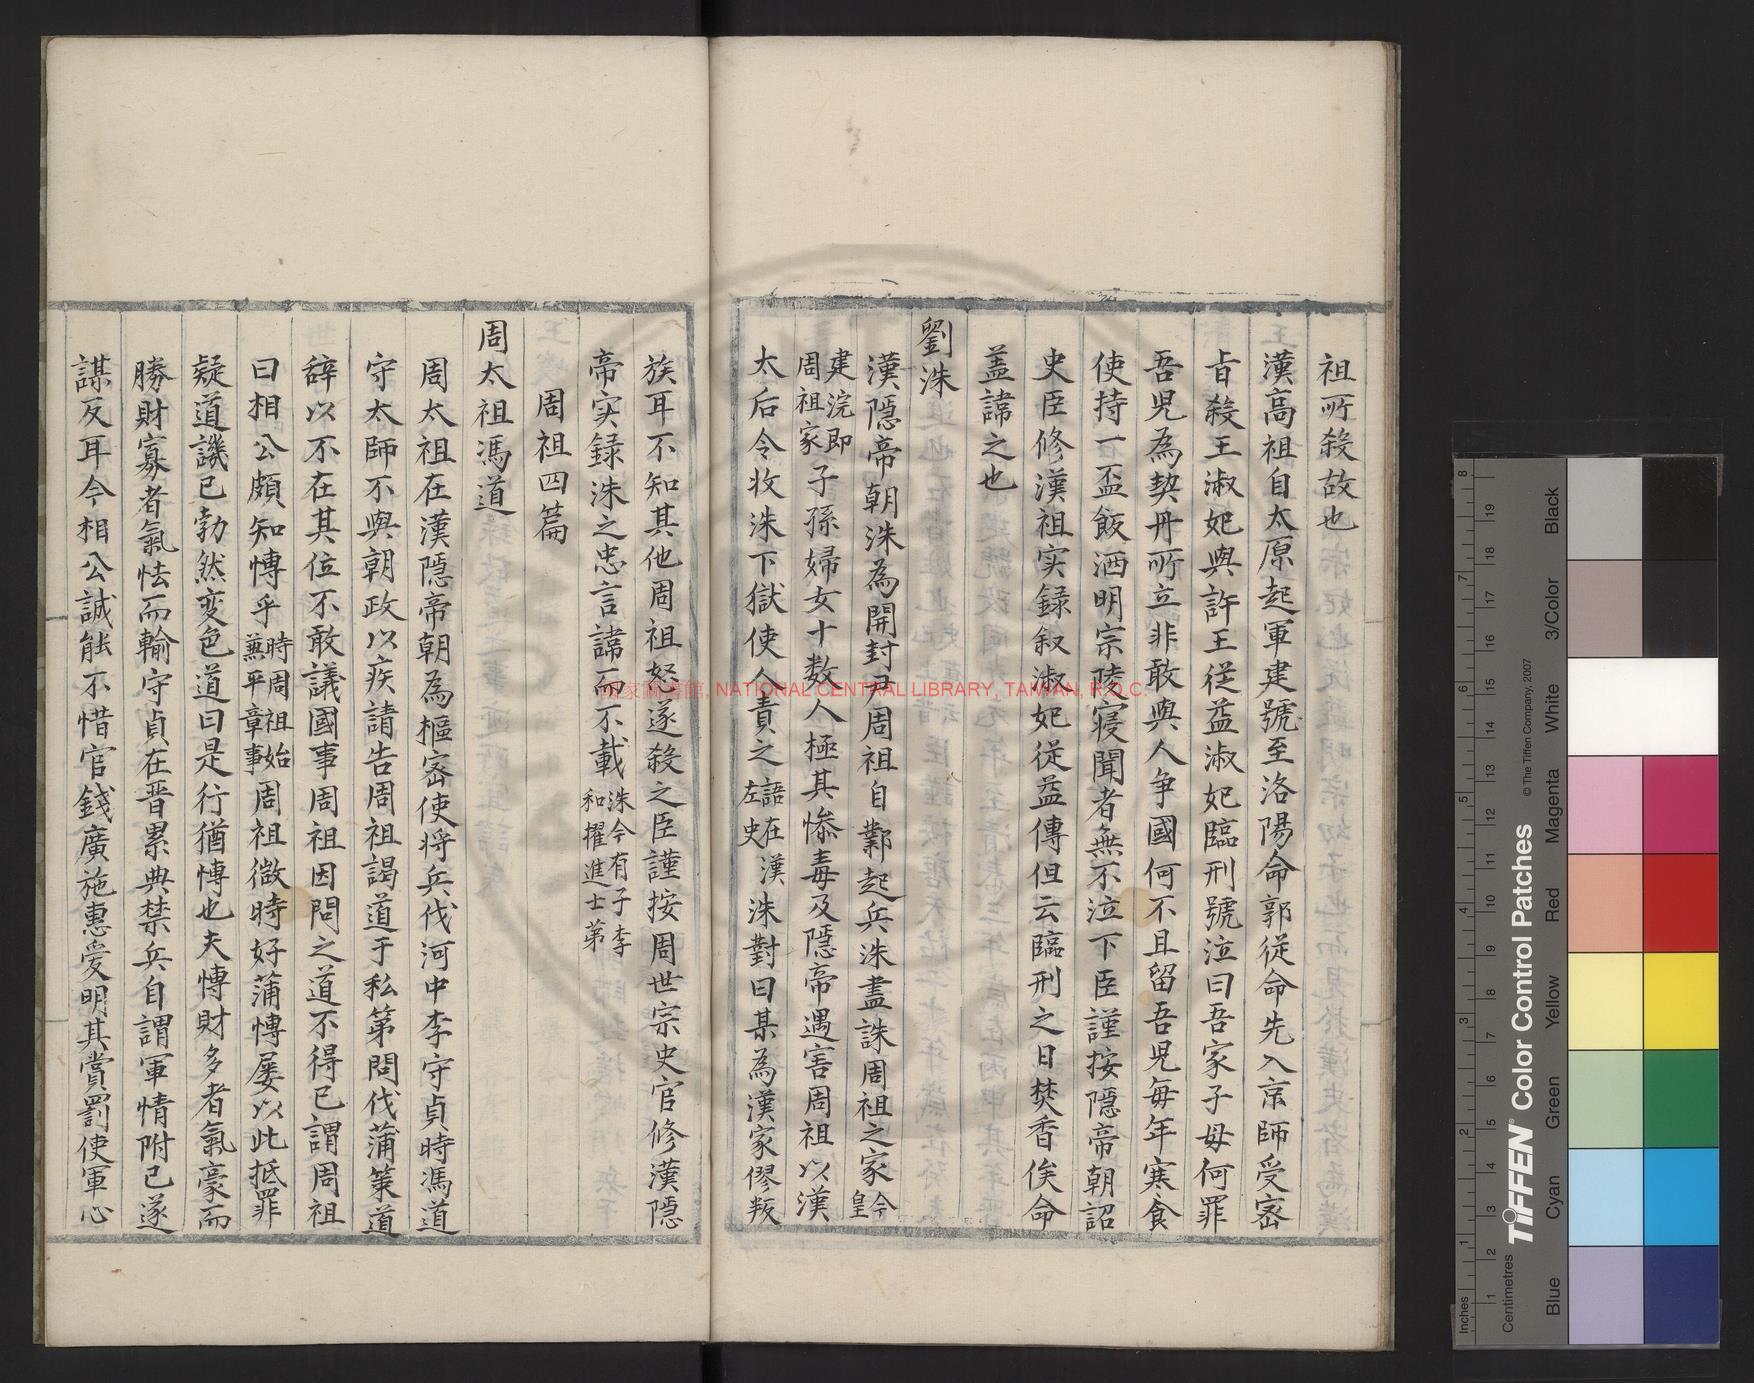 祖所殺故也
漢高祖自太原起軍建號至洛陽命郭従命先入京師受宻
㫖殺王淑妃與許王従益淑妃臨刑號泣曰吾家子母何罪
吾児為契丹所立非敢與人争國何不且留吾児毎年寒食
使持一盃飯洒明宗陵寝聞者無不泣下臣謹按隱帝朝詔
史臣修漢祖实録叙淑妃従益傳但云臨刑之日焚香俟命
盖諱之也
劉洙
漢隱帝朝洙為開封尹周祖自鄴起兵洙盡誅周祖之家今皇
建浣即周祖家子孫婦女十数人極其惨毒及隱帝遇害周祖以漢
太后令收洙下獄使人責之語在漢左史洙對曰某為漢家僇叛
族耳不知其他周祖怒遂殺之臣謹按周世宗史官修漢隱
帝实録洙之忠言諱而不載洙今有子李和擢進士第
周祖四篇
周太祖馮道
周太祖在漢隱帝朝為樞宻使将兵伐河中李守貞時馮道
守太師不與朝政以疾請告周祖謁道于私第問伐蒲策道
辞以不在其位不敢議國事周祖因問之道不得已謂周祖
曰相公頗知博乎時周祖始兼平章事周祖微時好蒲博屡以此抵罪
疑道譏已勃然変色道曰是行猶博也夫博財多者氣豪而
勝財寡者氣怯而輸守貞在晋累典禁兵自謂軍情附已遂
謀反耳今相公誠能不惜官錢廣施惠爱明其賞罰使軍心
國家圖書館, NATIONAL CENTRAL LIBRARY, TAIWAN, R.O.C.
TIFFEN® Color Control Patches
© The Tiffen Company, 2007
Blue Cyan Green Yellow Red Magenta White 3/Color Black
Inches 1 2 3 4 5 6 7 8
Centimetres 1 2 3 4 5 6 7 8 9 10 11 12 13 14 15 16 17 18 19